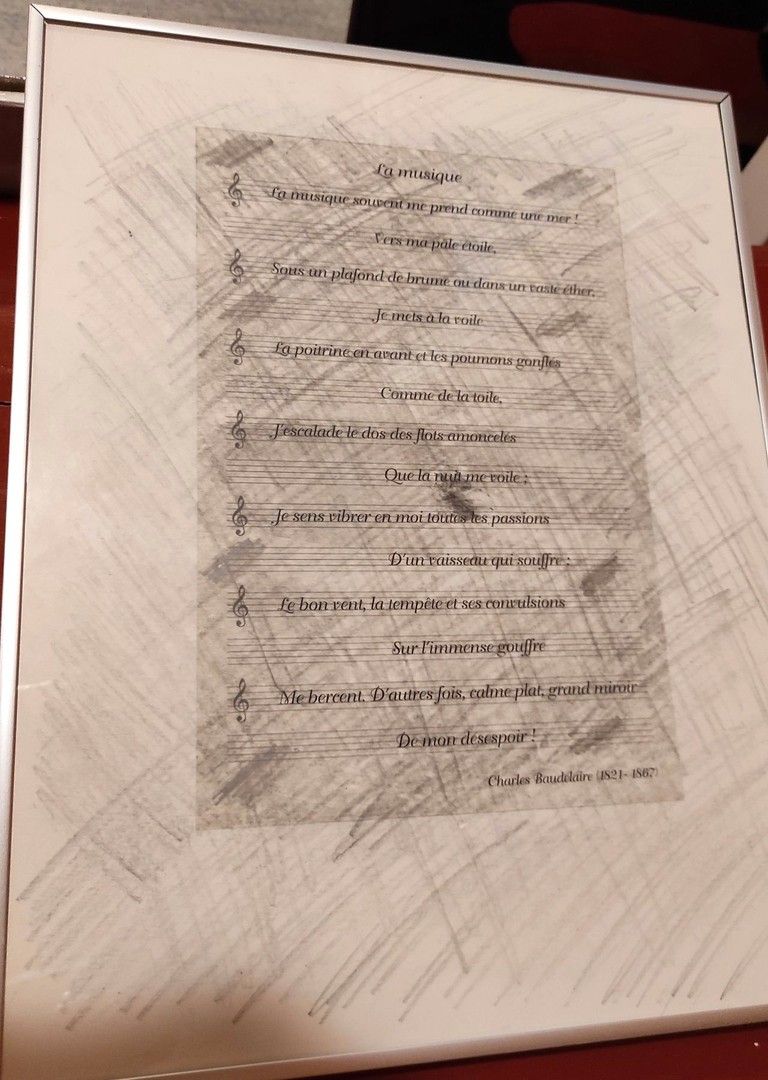 La musique
La musique souvent me prend comme une mer !
Vers ma pâle étoile,
Sous un plafond de brume ou dans un vaste éther,
Je mets à la voile
La poitrine en avant et les poumons gonflés
Comme de la toile,
J'escalade le dos des flots amoncelés
Que la nuit me voile ;
Je sens vibrer en moi toutes les passions
D'un vaisseau qui souffre :
Le bon vent, la tempête et ses convulsions
Sur l'immense gouffre
Me bercent. D'autres fois, calme plat, grand miroir
De mon désespoir !
Charles Baudelaire (1821- 1867)